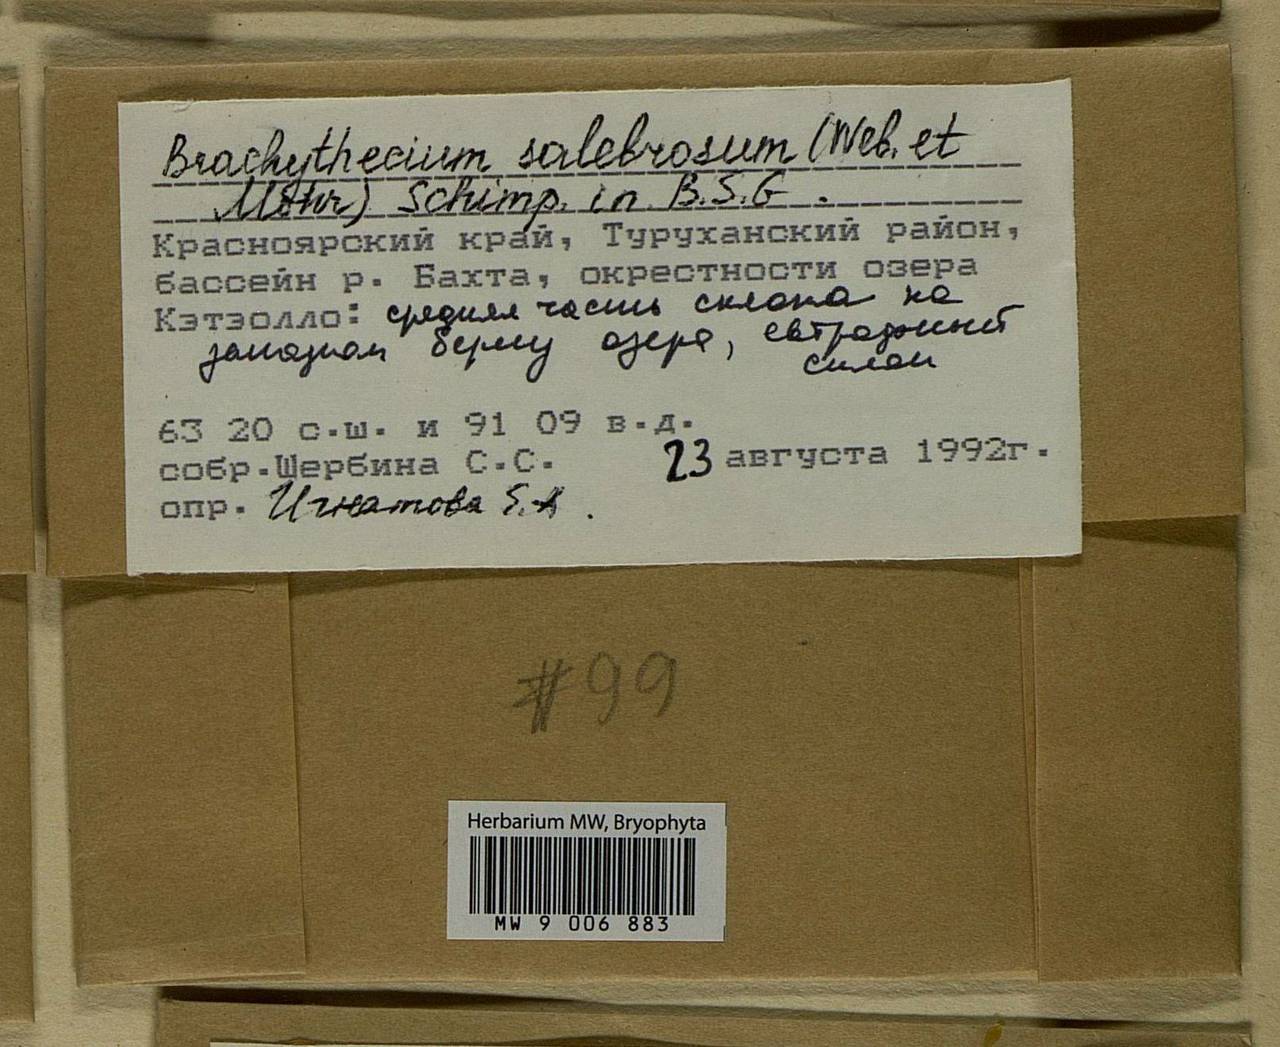 Brachythecium salebrosum (Web. et
Mohr) Schimp. in B.S.G.
Красноярский край, Туруханский район,
бассейн р. Бахта, окрестности озера
Кэтэолло: средняя часть склона на
западном берегу озера, евтрофный
склон
63 20 с.ш. и 91 09 в.д.
собр.Щербина С.С. 23 августа 1992г.
опр. Игнатова Е.А.
#99
Herbarium MW, Bryophyta
MW 9 006 883